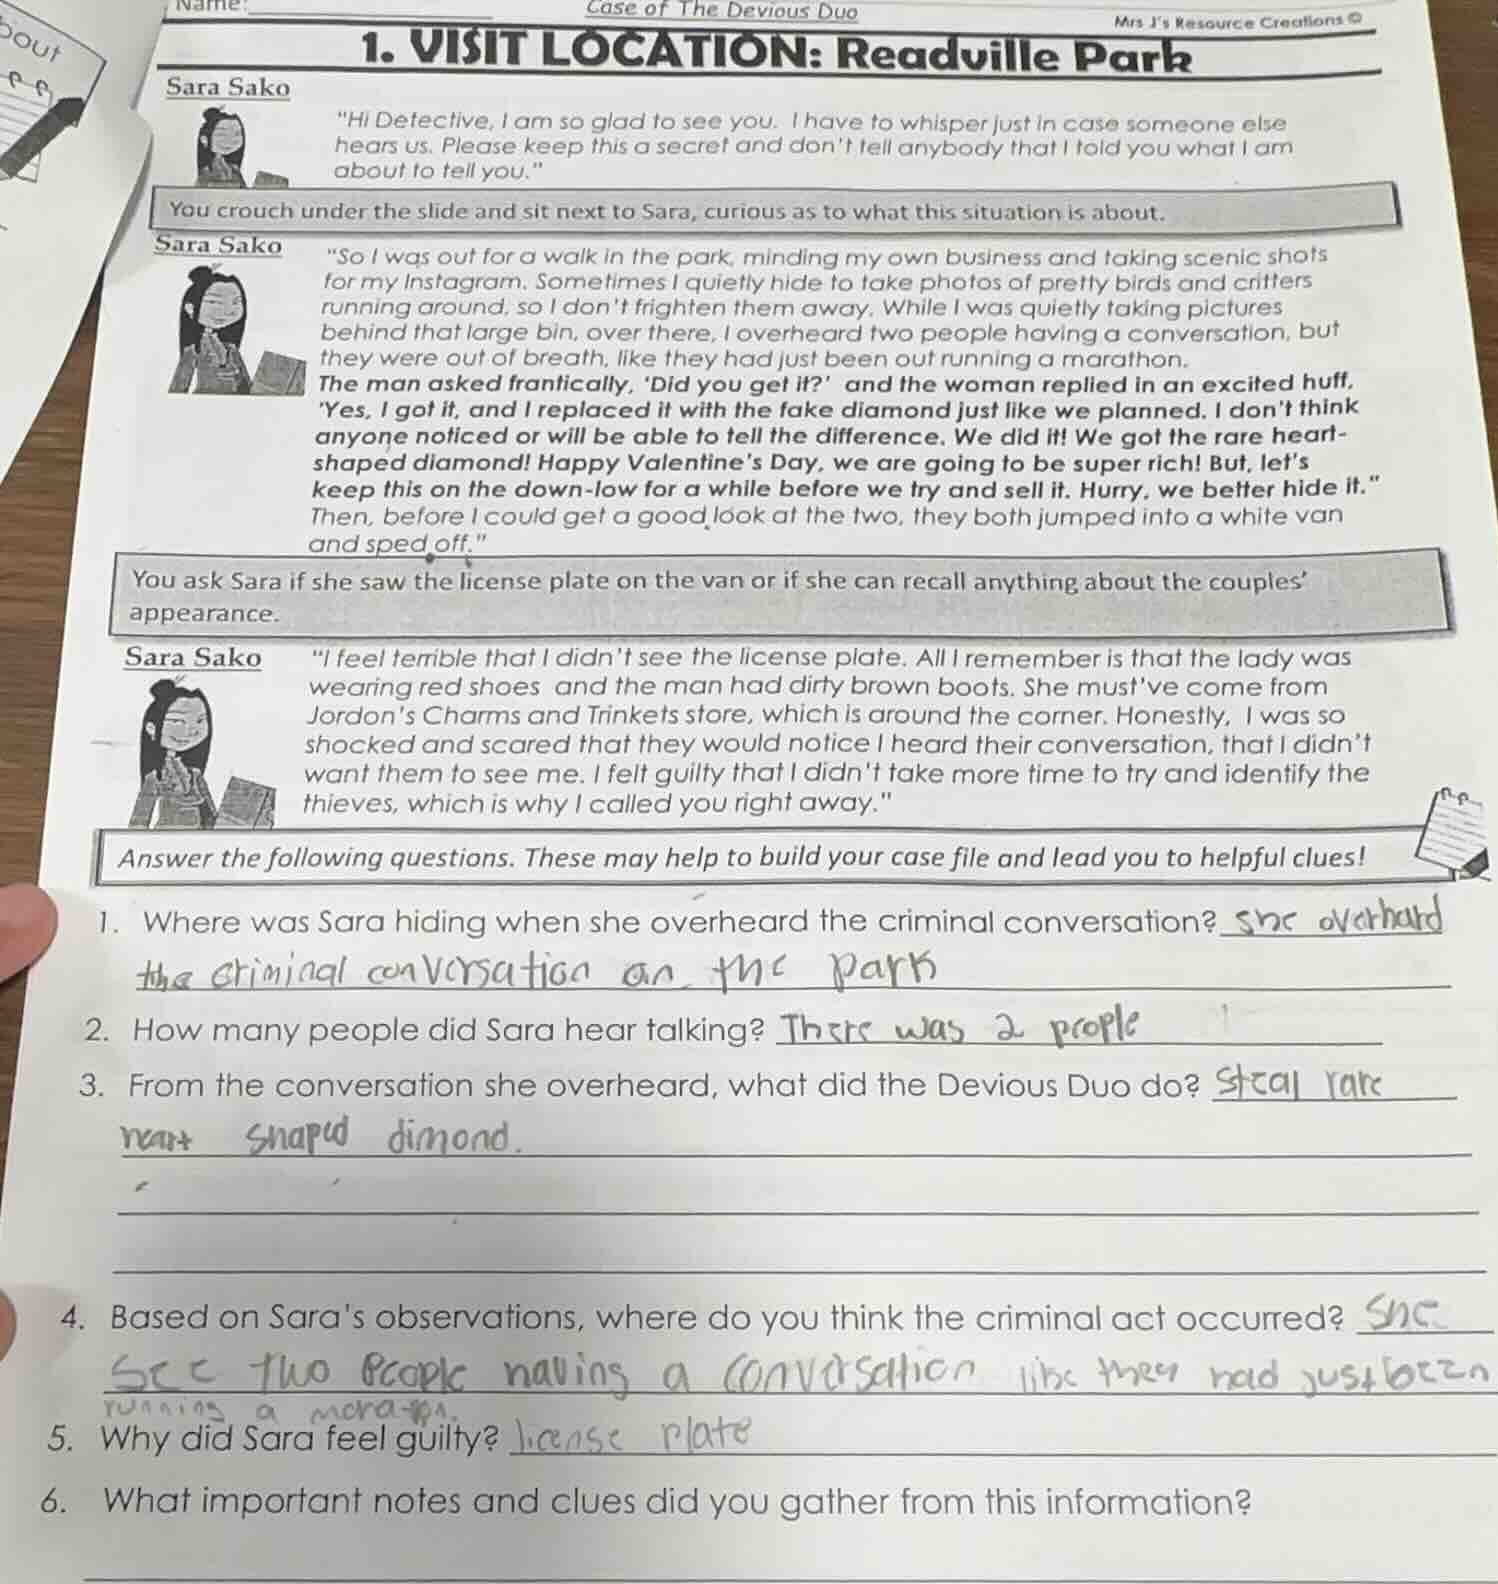 bout
Name:
Case of The Devious Duo
Mrs J's Resource Creations ©
1. VISIT LOCATION: Readville Park
Sara Sako
"Hi Detective, I am so glad to see you. I have to whisper just in case someone else
hears us. Please keep this a secret and don't tell anybody that I told you what I am
about to tell you."
You crouch under the slide and sit next to Sara, curious as to what this situation is about.
Sara Sako
"So I was out for a walk in the park, minding my own business and taking scenic shots
for my Instagram. Sometimes I quietly hide to take photos of pretty birds and critters
running around, so I don't frighten them away. While I was quietly taking pictures
behind that large bin, over there, I overheard two people having a conversation, but
they were out of breath, like they had just been out running a marathon.
The man asked frantically, 'Did you get it?' and the woman replied in an excited huff,
'Yes, I got it, and I replaced it with the fake diamond just like we planned. I don't think
anyone noticed or will be able to tell the difference. We did it! We got the rare heart-
shaped diamond! Happy Valentine's Day, we are going to be super rich! But, let's
keep this on the down-low for a while before we try and sell it. Hurry, we better hide it."
Then, before I could get a good look at the two, they both jumped into a white van
and sped off."
You ask Sara if she saw the license plate on the van or if she can recall anything about the couples'
appearance.
Sara Sako
"I feel terrible that I didn't see the license plate. All I remember is that the lady was
wearing red shoes and the man had dirty brown boots. She must've come from
Jordon's Charms and Trinkets store, which is around the corner. Honestly, I was so
shocked and scared that they would notice I heard their conversation, that I didn't
want them to see me. I felt guilty that I didn't take more time to try and identify the
thieves, which is why I called you right away."
Answer the following questions. These may help to build your case file and lead you to helpful clues!
1. Where was Sara hiding when she overheard the criminal conversation? she overhard
the criminal conversation an the park
2. How many people did Sara hear talking? There was 2 people
3. From the conversation she overheard, what did the Devious Duo do? Steal rare
heart shaped dimond.
4. Based on Sara's observations, where do you think the criminal act occurred? She
see two people having a conversation like they had just been
running a
5. Why did Sara feel guilty? license plate
6. What important notes and clues did you gather from this information?